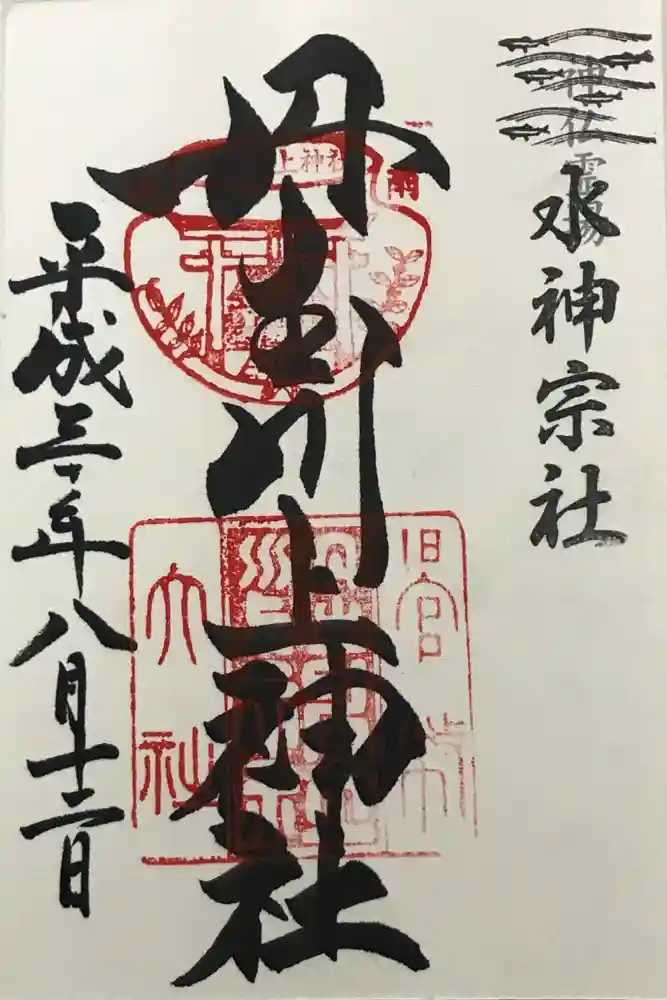 神仏霊場
水神宗社
丹生川上神社
上神社
雨
旧官幣
大社
平成三十年八月十二日